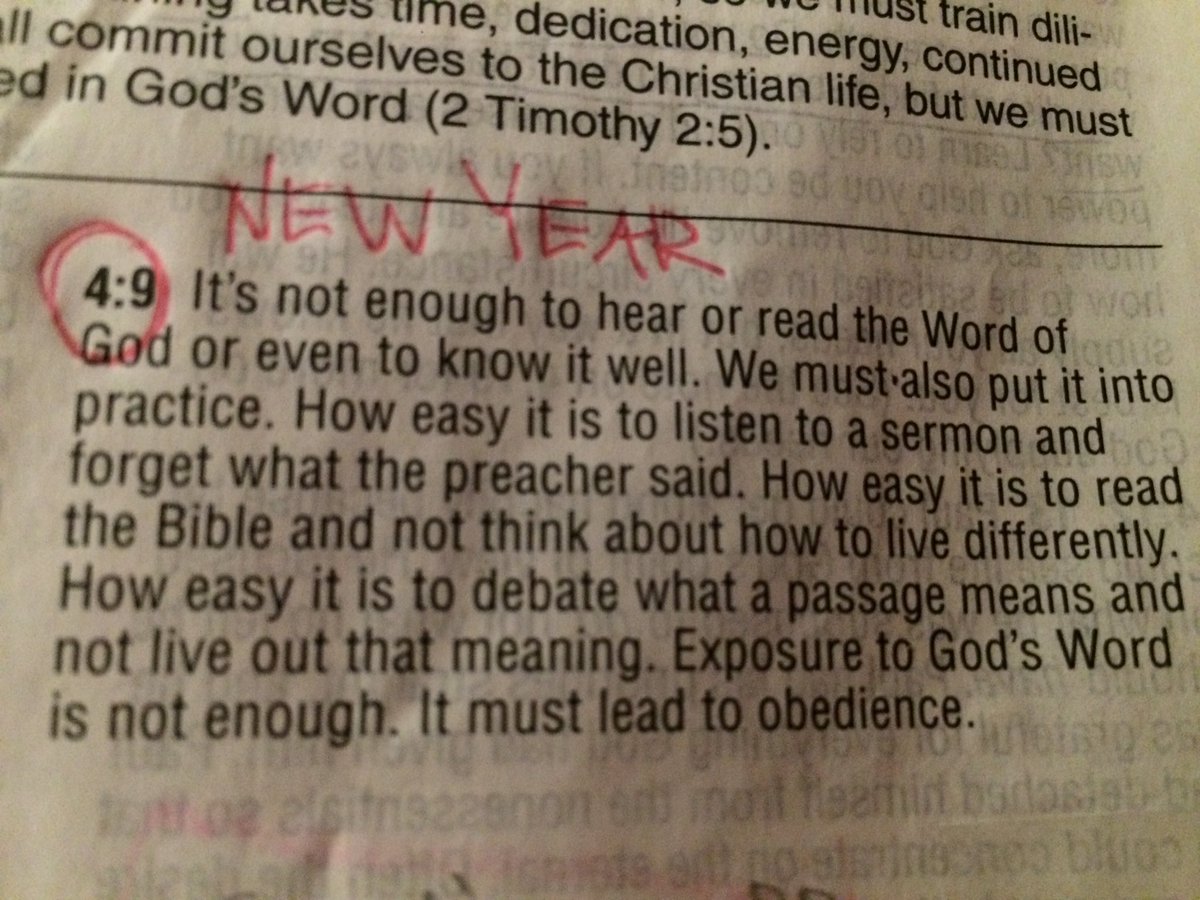 takes time, dedication, energy, continued
must train dili-
all commit ourselves to the Christian life, but we must
ed in God's Word (2 Timothy 2:5).
NEW YEAR
4:9 It's not enough to hear or read the Word of
God or even to know it well. We must also put it into
practice. How easy it is to listen to a sermon and
forget what the preacher said. How easy it is to read
the Bible and not think about how to live differently.
How easy it is to debate what a passage means and
not live out that meaning. Exposure to God's Word
is not enough. It must lead to obedience.